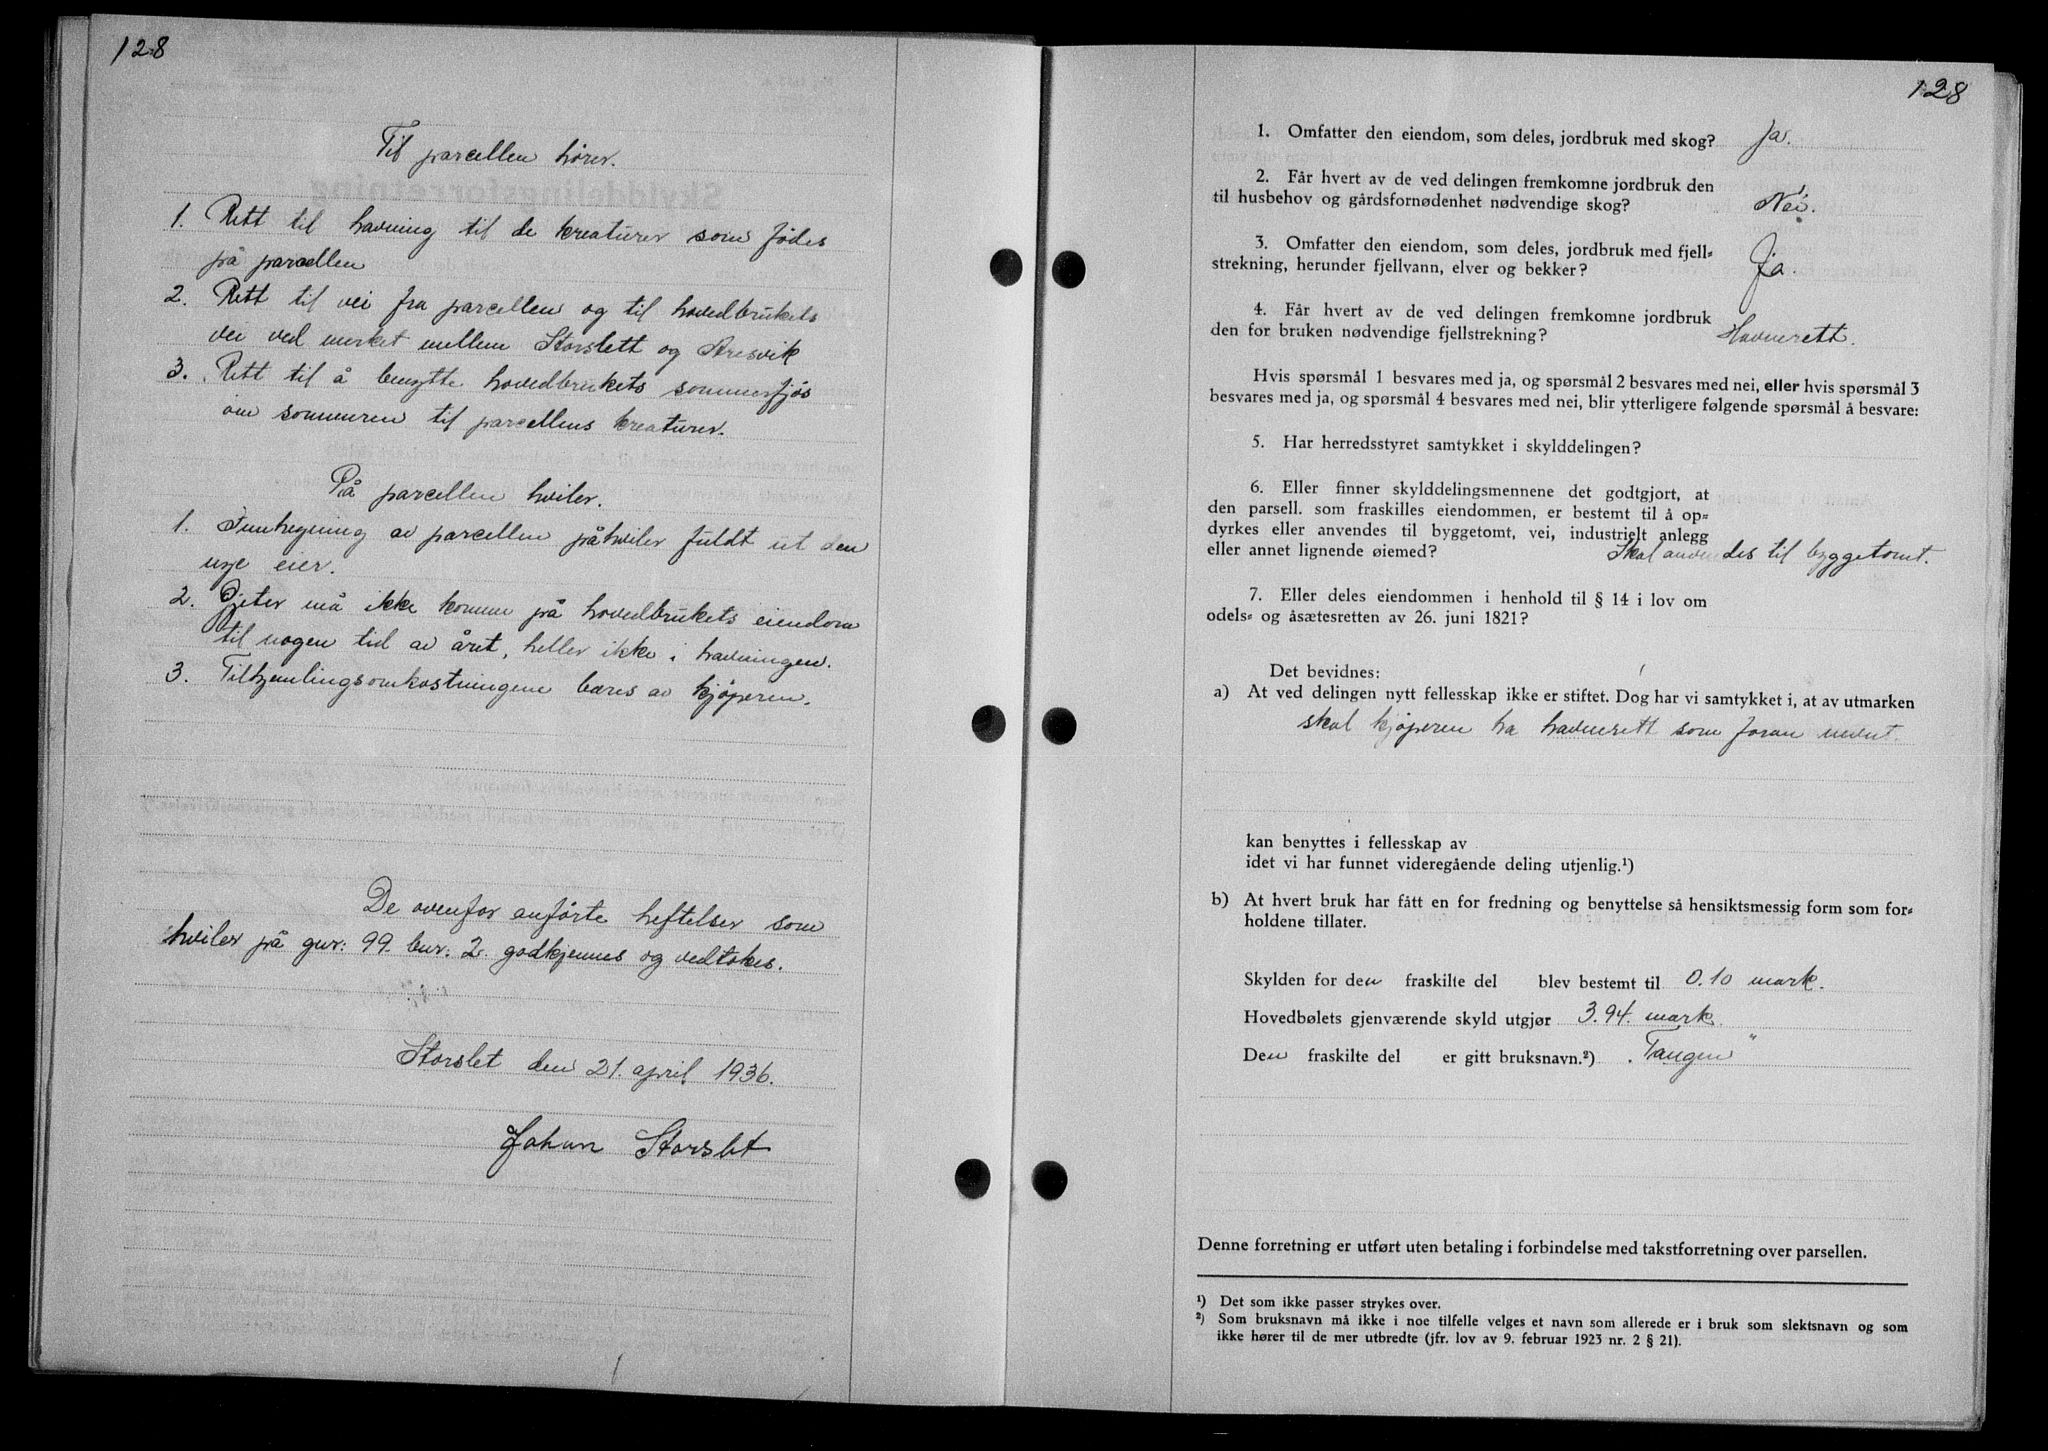 128
Til parcellen hører.
1. Rett til havning til de kreaturer som fødes
på parcellen
2. Rett til vei fra parcellen og til hovedbrukets
vei ved merket mellem Storslett og Aresvik
3. Rett til å benytte hovedbrukets sommerfjøs
om sommeren til parcellens kreaturer.
På parcellen hviler.
1. Innhegning av parcellen påhviler fuldt ut den
nye eier.
2. Gjeter må ikke komme på hovedbrukets eiendom
til nogen tid av året, heller ikke i havningen.
3. Tilhjemlingsomkostningene bæres av kjøperen.
De ovenfor anførte heftelser som
hviler på gnr: 99. bnr: 2. godkjennes og vedtokes.
Storslet den 21. april 1936.
Johan Storslet
128
1. Omfatter den eiendom, som deles, jordbruk med skog? Ja.
2. Får hvert av de ved delingen fremkomne jordbruk den
til husbehov og gårdsfornødenhet nødvendige skog? Nei.
3. Omfatter den eiendom, som deles, jordbruk med fjell=
strekning, herunder fjellvann, elver og bekker? Ja.
4. Får hvert av de ved delingen fremkomne jordbruk
den for bruken nødvendige fjellstrekning? Havnerett.
Hvis spørsmål 1 besvares med ja, og spørsmål 2 besvares med nei, eller hvis spørsmål 3
besvares med ja, og spørsmål 4 besvares med nei, blir ytterligere følgende spørsmål å besvare:
5. Har herredsstyret samtykket i skylddelingen?
6. Eller finner skylddelingsmennene det godtgjort, at
den parsell. som fraskilles eiendommen, er bestemt til å op=
dyrkes eller anvendes til byggetomt, vei, industrielt anlegg
eller annet lignende øiemed? Skal anvendes til byggetomt.
7. Eller deles eiendommen i henhold til § 14 i lov om
odels= og åsætesretten av 26. juni 1821?
Det bevidnes:
a) At ved delingen nytt fellesskap ikke er stiftet. Dog har vi samtykket i, at av utmarken
skal kjøperen ha havnerett som foran nevnt.
kan benyttes i fellesskap av
idet vi har funnet videregående deling utjenlig.¹)
b) At hvert bruk har fått en for fredning og benyttelse så hensiktsmessig form som for=
holdene tillater.
Skylden for den fraskilte del blev bestemt til 0.10 mark.
Hovedbølets gjenværende skyld utgjør 3.94. mark.
Den fraskilte del er gitt bruksnavn.²) „Tangen"
Denne forretning er utført uten betaling i forbindelse med takstforretning over parsellen.
¹) Det som ikke passer strykes over.
²) Som bruksnavn må ikke i noe tilfelle velges et navn som allerede er i bruk som slektsnavn og som
ikke hører til de mer utbredte (jfr. lov av 9. februar 1923 nr. 2 § 21).